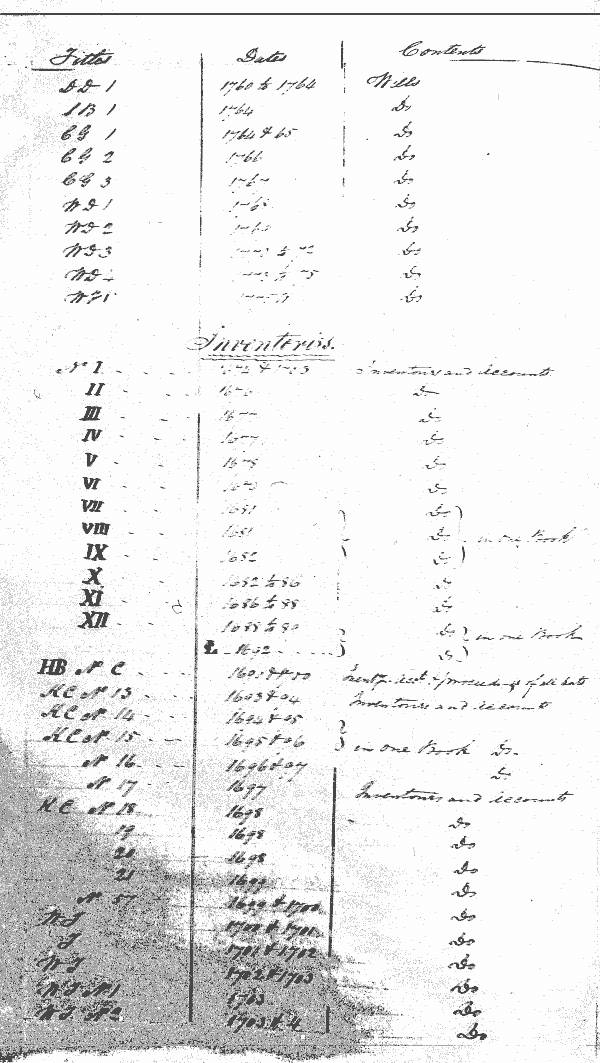 Titles Dates Contents
DD 1 1760 to 1764 Wills
1764 Do
CG 1 1764 & 65 Do
CG 2 1766 Do
CG 3 Do
WD 1 Do
WD 2 Do
WD 3 Do
WD Do
Do
Inventories.
No I Inventories and Accounts
II Do
III Do
IV 1677 Do
V 1678 Do
VI Do
VII 1681 Do
VIII 1681 Do in one Book
IX 1682 Do
X 1682 to 86 Do
XI 1686 to 88 Do
XII 1688 to Do in one Book
L 1692 Do
HB No C proceedings of all
KC No 13 1693 & 94 Inventories and accounts
KC No 14 1694 & 95
KC No 15 1695 & 96 in one Book Do
No 16 1696 & 97 Do
No 17 1697 Inventories and Accounts
KC No 18 1698 Do
19 1698 Do
20 1698 Do
21 1699 Do
No 1699 & 1700 Do
1700 & 1701 Do
T 1701 & 1702 Do
WT 1702 & 1703 Do
WT No 1 1703 Do
WT No 2 1703 & 4 Do